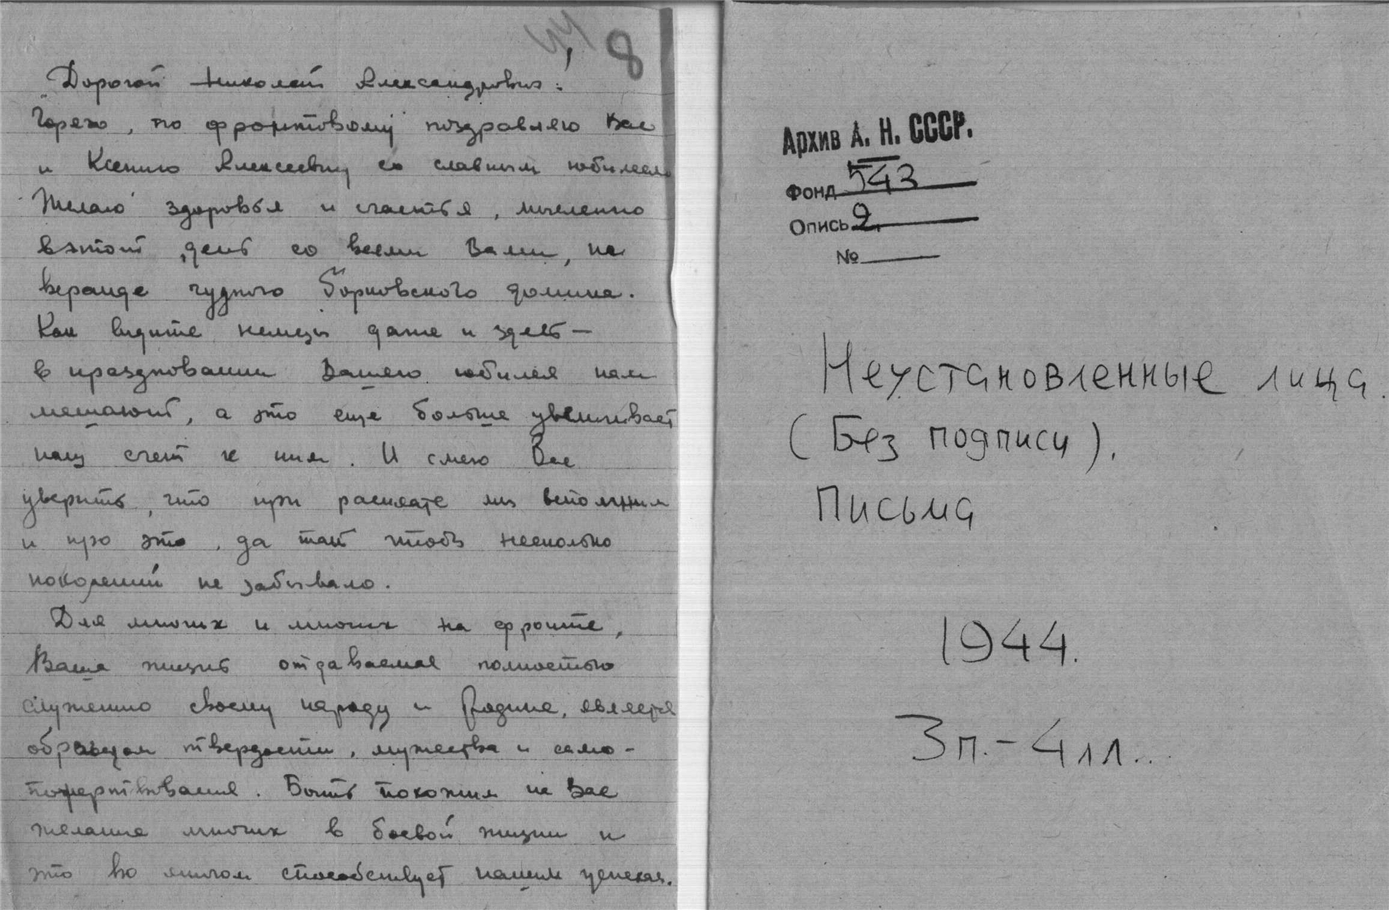 8
Дорогой Николай Александрович!
Горячо, по фронтовому поздравляю Вас
и Ксению Алексеевну со славным юбилеем
Желаю здоровья и счастья, мысленно
в этот день со всеми Вами, на
веранде чудного Борковского домика.
Как видите немцы даже и здесь —
в праздновании Вашего юбилея нам
мешают, а это еще больше увеличивает
наш счет к ним. И смею Вас
уверить, что при расплате мы вспомним
и про это, да так чтобы несколько
поколений не забывало.
Для многих и многих на фронте,
Ваша жизнь отдаваемая полностью
служению своему народу и Родине, является
образцом твердости, мужества и само-
пожертвования. Быть похожим на Вас
желание многих в боевой жизни и
это во многом способствует нашим успехам.
Архив А. Н. СССР.
Фонд 543
Опись 2
№
Неустановленные лица.
(Без подписи).
Письма
1944.
3п. - 4лл..